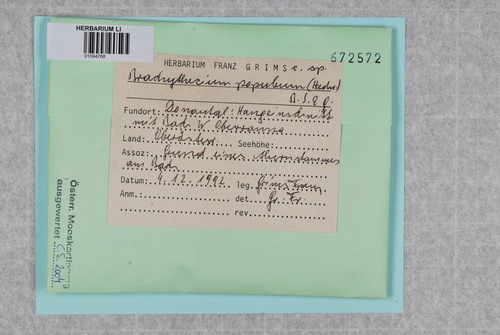 HERBARIUM LI
01594768
672572
HERBARIUM FRANZ GRIMS c. sp.
Brachythecium populeum (Hedw.)
B.S.G.
Fundort: Donautal: Hangeinschnitt
mit Bach W Oberranna
Land: Oberösterr. Seehöhe:
Assoz: Grund eines
aus Bach
Datum: 4.12.1992 leg. Grims Franz
Anm. det Gr. Fr.
rev.
Österr. Mooskartierung
ausgewertet C.S. 2004